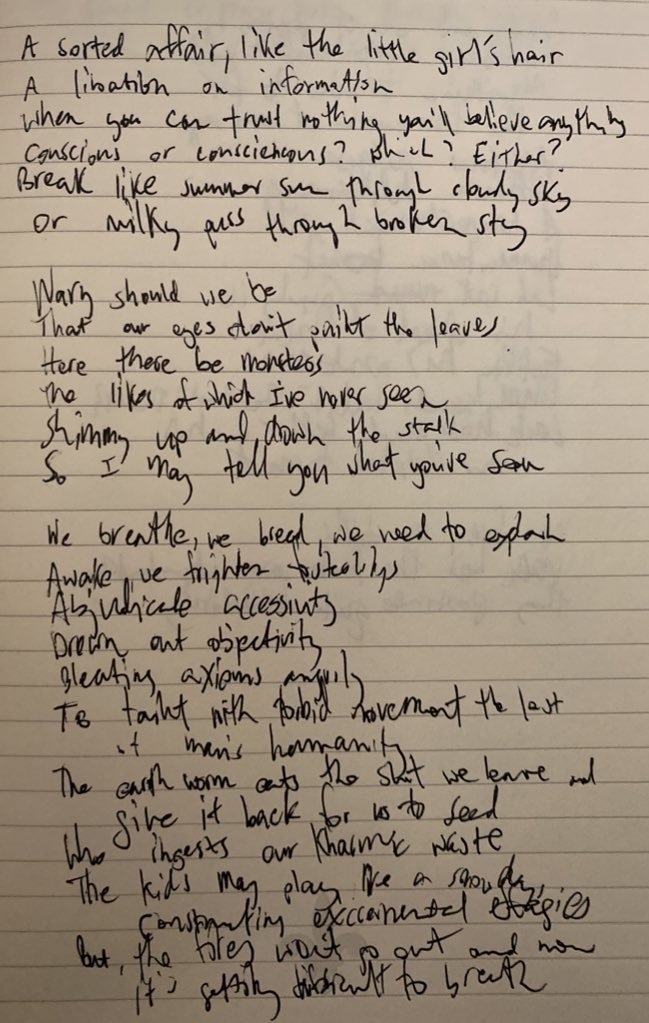 A sorted affair, like the little girl's hair
A libation on information
When you can trust nothing you'll believe anything
Conscious or consciencous? Which? Either?
Break like summer sun through cloudy sky
Or milky puss through broken sty
Wary should we be
That our eyes don't paint the leaves
Here there be monsters
The likes of which I've never seen
Shimmy up and down the stalk
So I may tell you what you've seen
We breathe, we bread, we need to explain
Awake, we frighten
Abjudicate
Drown out objectivity
Bleating axioms angrily
To taint with torbid movement the last
of man's humanity
The earth worm eats the shit we leave and
give it back for us to feed
Who ingests our Kharmic waste
The kids may play like a snowday,
Constructing exccremental effegies
But, the fires won't go out and now
it's getting difficult to breath